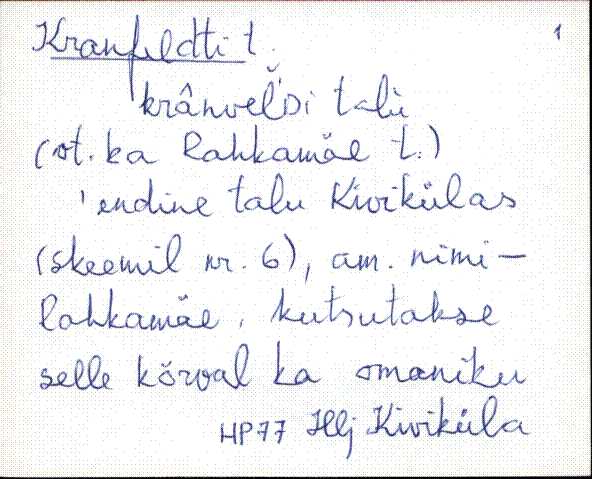 1
Kranfeldti t.
krânvel̆Di talu
(vt. ka Lahkamäe t.)
'endine talu Kivikülas
(skeemil nr. 6), am. nimi –
Lahkamäe, kutsutakse
selle kõrval ka omaniku
HP77 Hlj Kiviküla